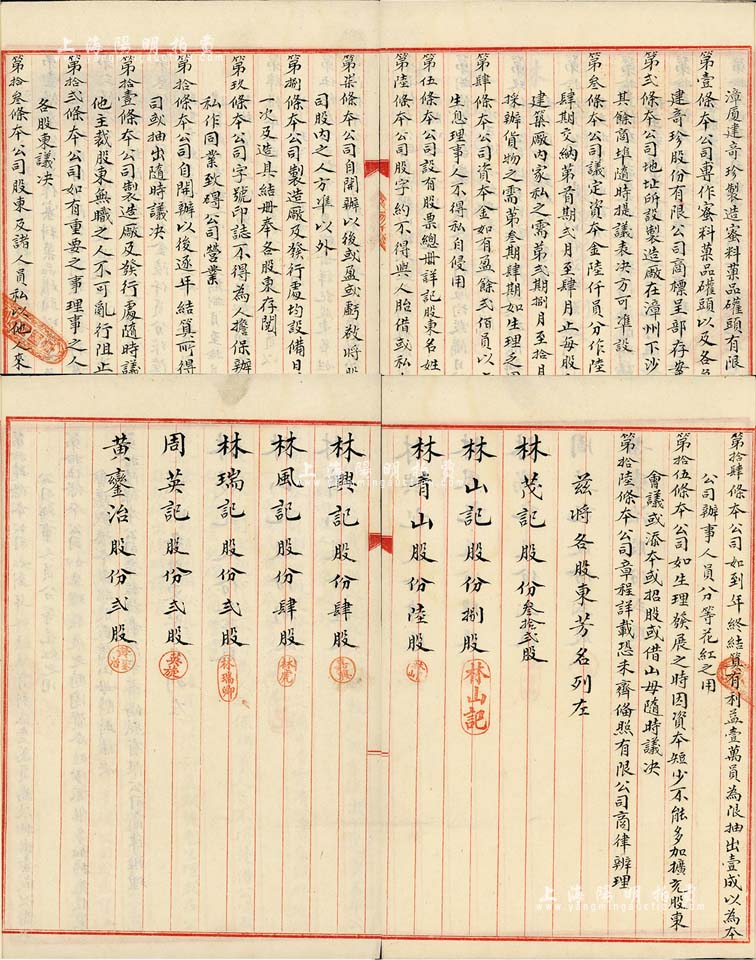 漳厦建奇珍製造蜜料菓品罐頭有限
第壹條本公司專作蜜料菓品罐頭以及各色
建奇珍股份有限公司商標呈部存案
第弍條本公司地址所設製造廠在漳州下沙
其餘商埠隨時提議表决方可准設
第叁條本公司議定資本金陸仟員分作陸
肆期交納第首期弍月至肆月止每股
建築廠内家私之需第弍期捌月至拾月
採辦貨物之需第叁期肆期如生理之
第肆條本公司資本金如有盈餘弍佰員以
生息理事人不得私自侵用
第伍條本公司設有股票總册詳記股東名姓
第陸條本公司股字約不得與人胎借或私
第柒條本公司自開辦以後或盈或虧欲將股
司股内之人方準以外
第捌條本公司製造廠及發行處均設備日
一次及造具結册奉各股東存閲
第玖條本公司字號印誌一不得為人擔保辦
私作同業致碍公司營業
第拾條本公司自開辦以後逐年結算所得
司或抽出隨時議决
第拾壹條本公司製造廠及發行處隨時議
他主裁股東無職之人不可亂行阻止
第拾弍條本公司如有重要之事理事之人
各股東議决
第拾叁條本公司股東及諸人員私以他人來
第拾肆條本公司如到年終結算有利益壹萬員為限抽出壹成以為本
公司辦事人員分等花紅之用
第拾伍條本公司如生理發展之時因資本短少不能多加擴充股東
會議或添本或招股或借山母隨時議决
第拾陸條本公司章程詳載恐未齊俻照有限公司商律辨理
茲將各股東芳名列左
林茂記股份叁拾弍股
林山記股份捌股
林山記
林青山股份陸股
林興記股份肆股
林風記股份肆股
林瑞記股份弍股
林瑞卿
周英記股份弍股
黃鑾治股份弍股
上海陽明拍賣
www.yangmingauction.com